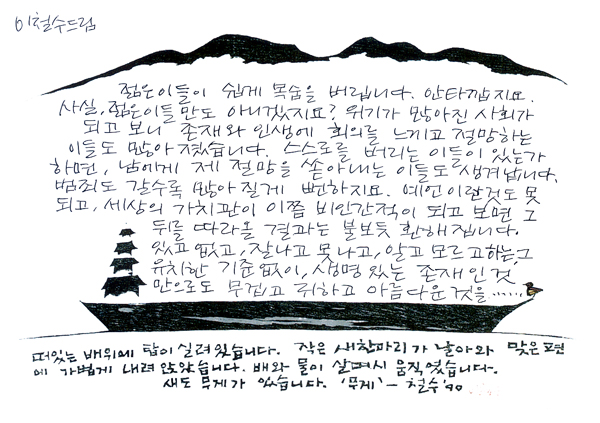 이철수드림
젊은이들이 쉽게 목숨을 버립니다. 안타깝지요.
사실, 젊은이들만도 아니겠지요? 위기가 많아진 사회가
되고 보니 존재와 인생에 회의를 느끼고 절망하는
이들도 많아졌습니다. 스스로를 버리는 이들이 있는가
하면, 남에게 제 절망을 쏟아내는 이들도 생겨납니다.
범죄도 갈수록 많아질게 뻔하지요. 예언이랄것도 못
되고, 세상의 가치관이 이쯤 비인간적이 되고 보면 그
뒤를 따라올 결과는 불보듯 환해집니다.
있고 없고, 잘나고 못나고, 알고 모르고하는, 그
유치한 기준 없이, 생명 있는 존재인 것
만으로도 무겁고 귀하고 아름다운 것을......
떠있는 배위에 탑이 실려있습니다. 작은 새한마리가 날아와 맞은편
에 가볍게 내려 앉았습니다. 배와 물이 살며시 움직였습니다.
새도 무게가 있습니다. '무게' - 철수 '90